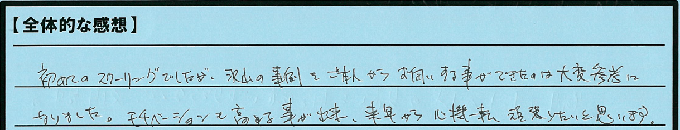 【全体的な感想】
初めてのスクーリングでしたが、沢山の事例をご本人からお伺いする事ができたのは大変参考に
なりました。モチベーションも高める事が出来、来年から心機一転頑張りたいと思います。